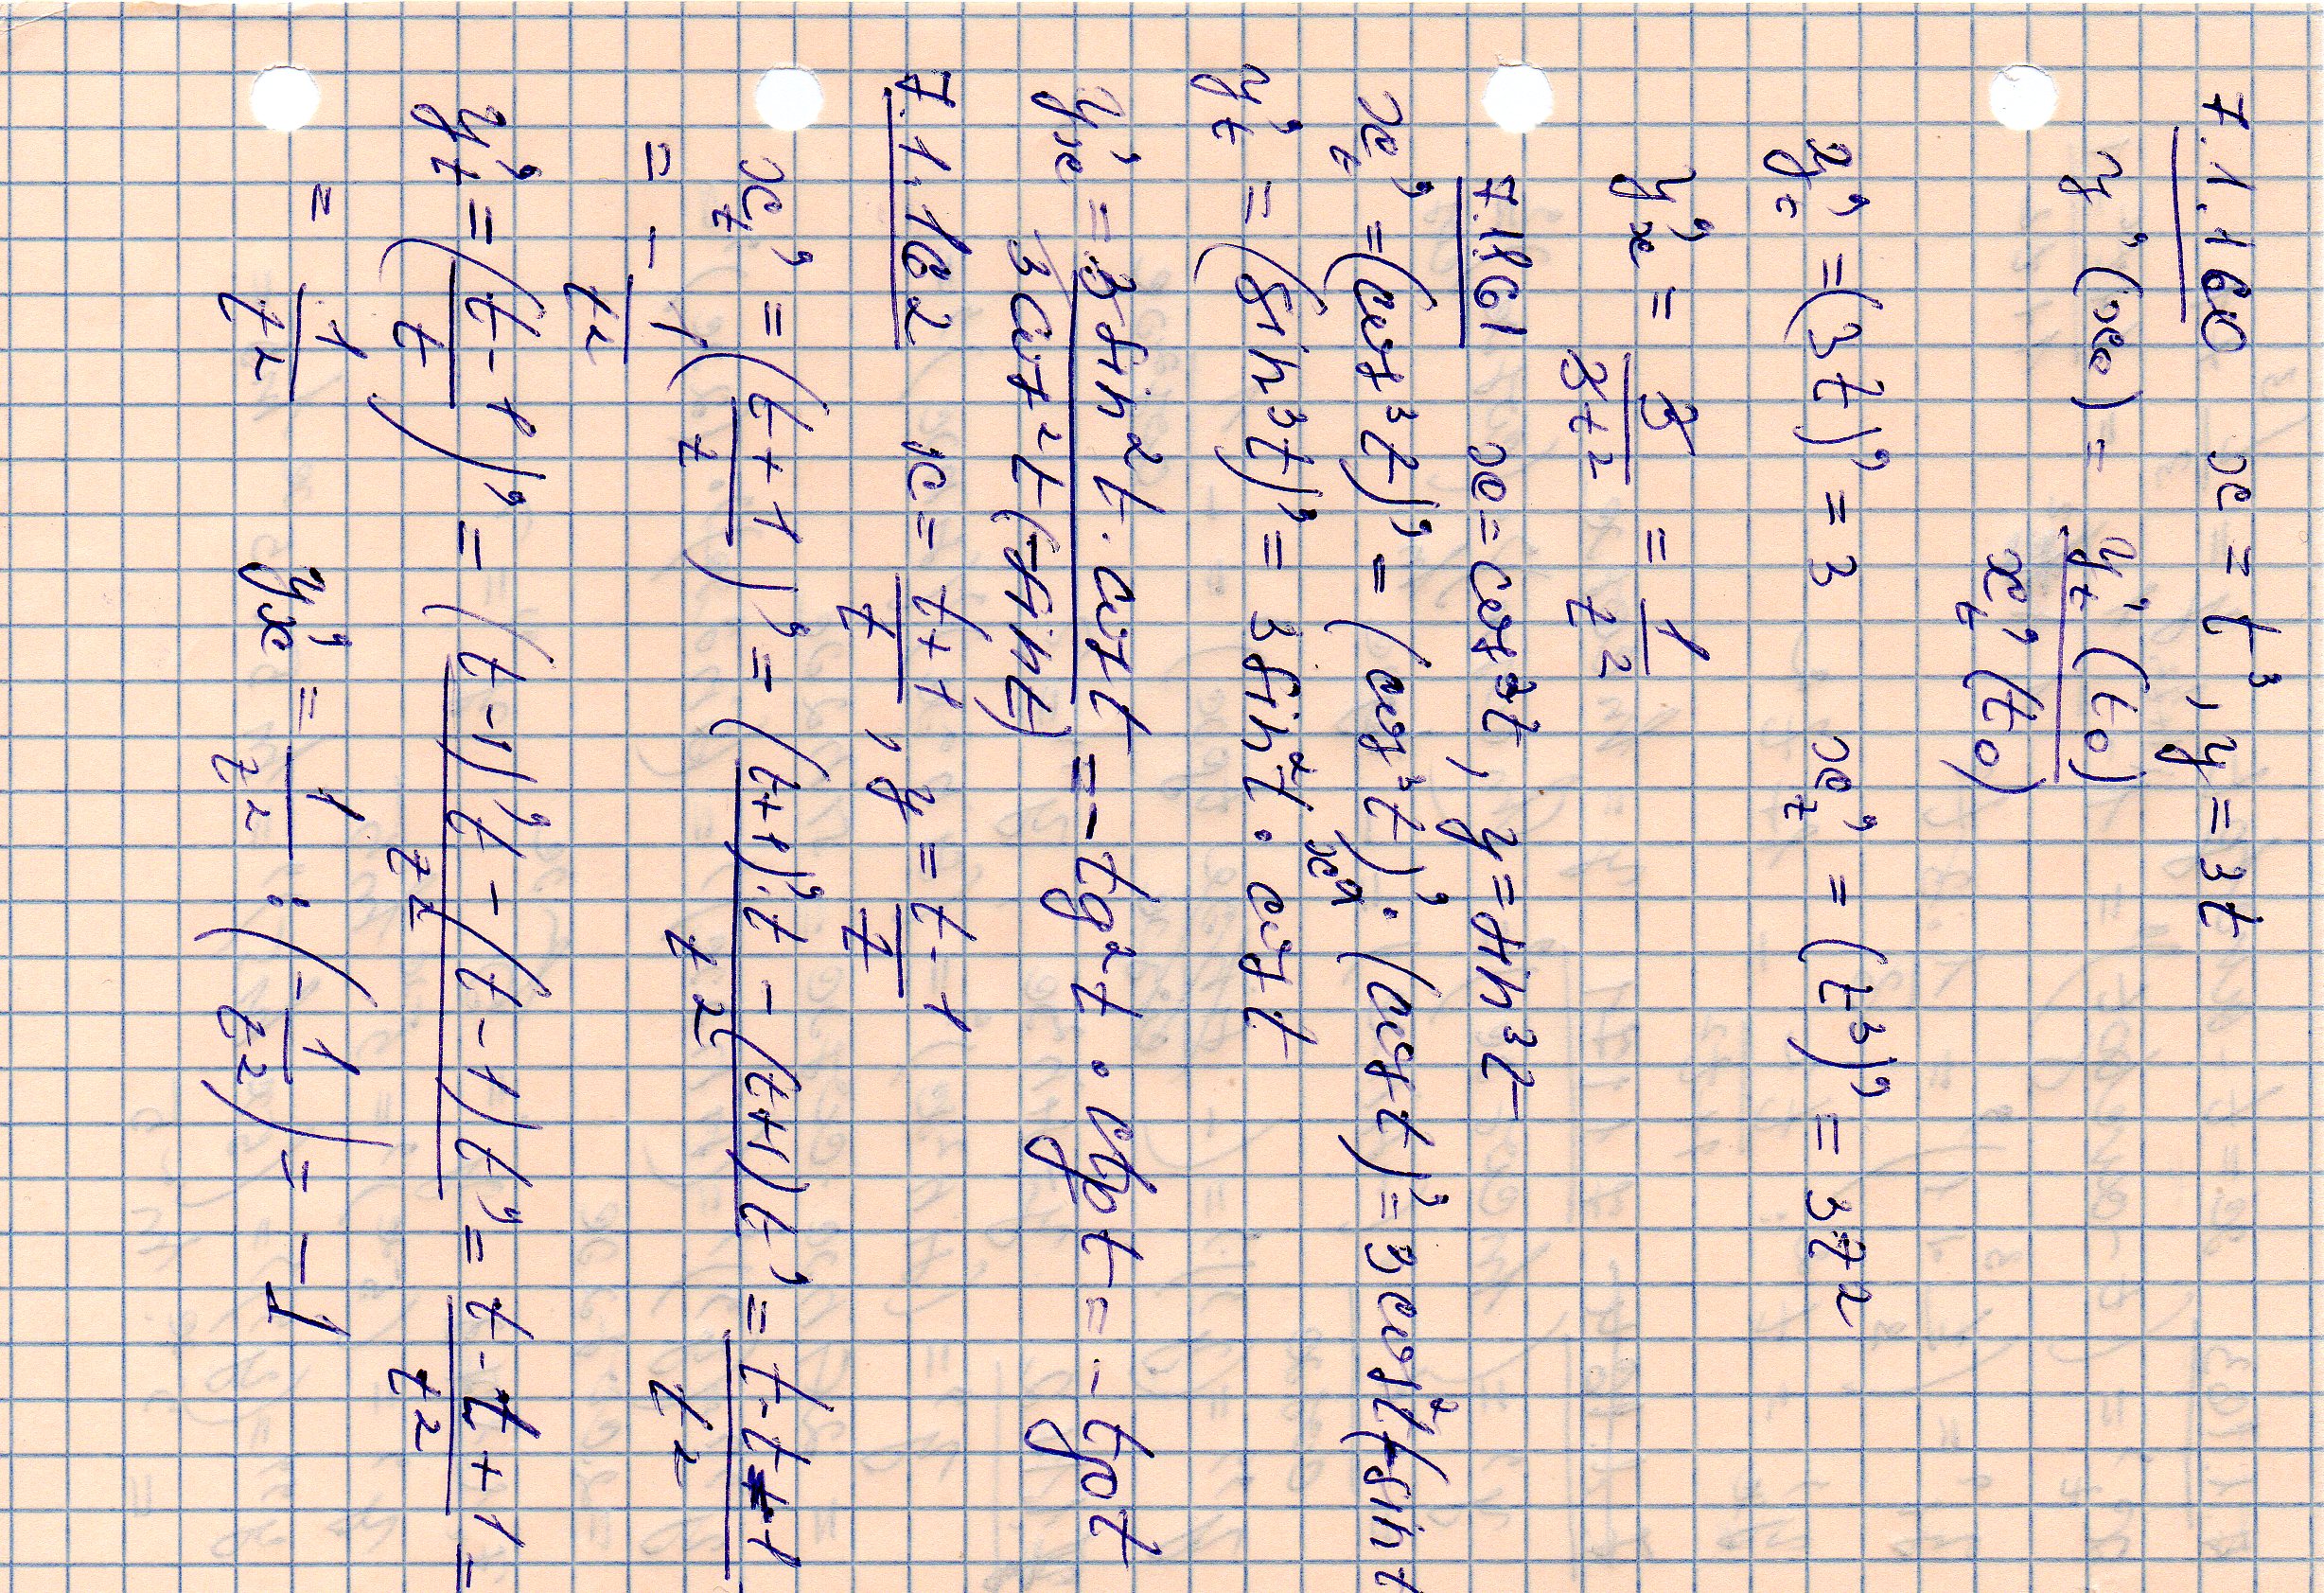 7.1.160 x = t³, y = 3t
y'(x₀) = y'ₜ(t₀) / x'ₜ(t₀)
y'ₜ = (3t)' = 3 x'ₜ = (t³)' = 3t²
y'ₓ = 3 / 3t² = 1 / t²
7.1.161 x = cos³t, y = sin³t
x'ₜ = (cos³t)' = (cos³t)' · (cos t)' = 3cos²t(-sin t
y'ₜ = (sin³t)' = 3sin²t · cos t
y'ₓ = 3sin²t · cos t / 3cos²t(-sin t) = -tg²t · ctg t = -tg t
7.1.162 x = (t+1)/t, y = (t-1)/t
x'ₜ = ((t+1)/t)' = ((t+1)'·t - (t+1)t') / t² = (t-t-1) / t²
= -1/t²
y'ₜ = ((t-1)/t)' = ((t-1)'t - (t-1)t') / t² = (t-t+1) / t² =
= 1/t² y'ₓ = 1/t² : (-1/t²) = -1